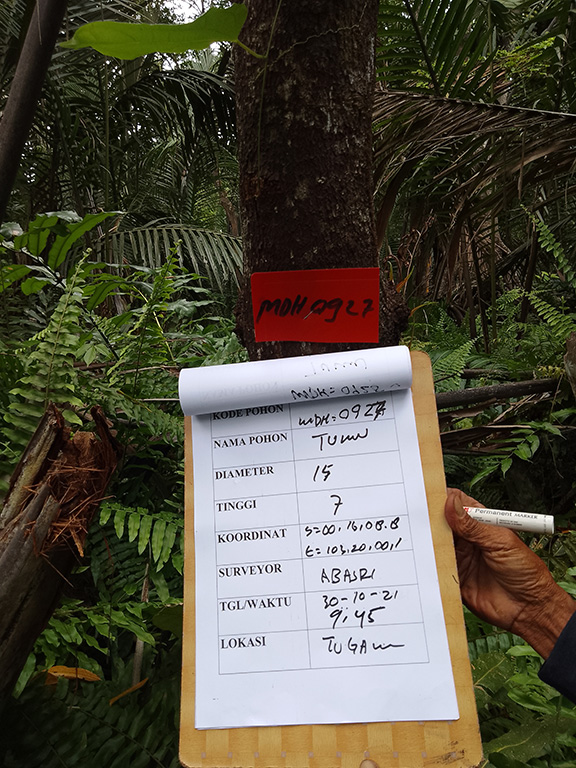 MDH,0927
KODE POHON MDH=0927
NAMA POHON TUMU
DIAMETER 15
TINGGI 7
KOORDINAT S=00,16,08.8
E=103,20,00,1
SURVEYOR ABASRI
TGL/WAKTU 30-10-21
9:45
LOKASI
Permanent MARKER